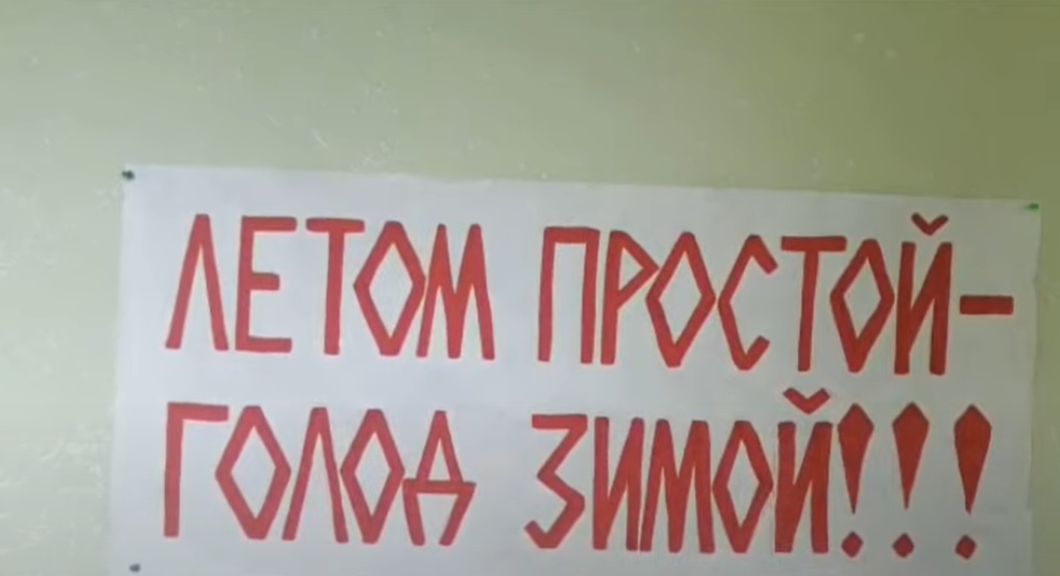 ЛЕТОМ ПРОСТОЙ-
ГОЛОД ЗИМОЙ!!!